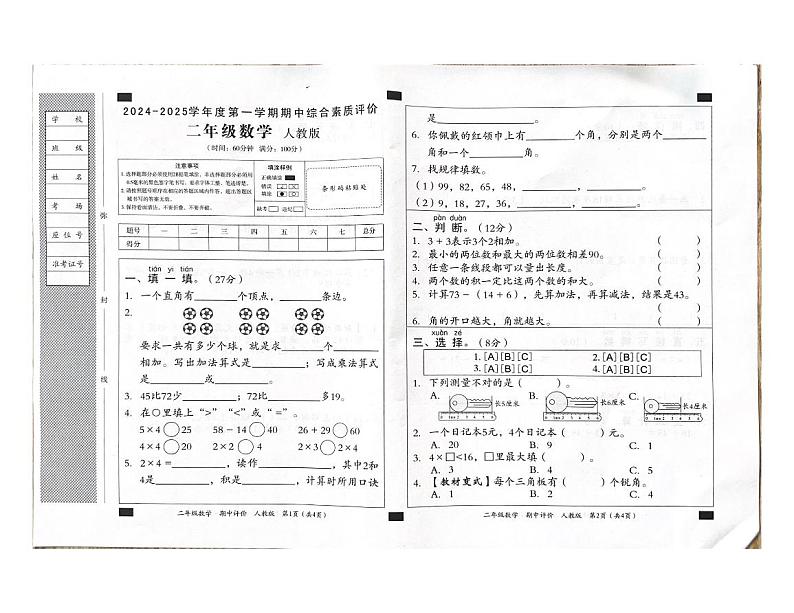 学 校
班 级
姓 名
考 场
座 位 号
准考证号
弥
封
线
2024-2025学年度第一学期期中综合素质评价
二年级数学 人教版
(时间:60分钟 满分:100分)
注意事项
填涂样例
正确填涂
错误
填涂
缺考
违纪
条形码粘贴处
题号 一 二 三 四 五 六 七 八 总分
得分
tián yi tián
一、填 一 填。(27分)
1. 一个直角有________个顶点,________条边。
2.
要求一共有多少个球,就是求________个________
相加。写出加法算式是________;写成乘法算式
是________或________。
3. 45比72少________;72比________多19。
4. 在○里填上“>”“<”或“=”。
5×4○25 58-14○40 26+29○60
4×4○20 2×2○4 2×3○2×4
5. 2×4=________,读作________,其中2和
4是________,积是________,计算时所用口诀
二年级数学 期中评价 人教版 第1页(共4页)
是________。
6. 你佩戴的红领巾上有________个角,分别是两个________
角和一个________角。
7. 找规律填数。
(1)99,82,65,48,________,________。
(2)9,18,27,36,________,________。
pàn duàn
二、判 断。(12分)
1. 3+3表示3个2相加。 ( )
2. 最小的两位数和最大的两位数相差90。 ( )
3. 任意一条线段都可以量出长度。 ( )
4. 两个数的积一定比这两个数的和大。 ( )
5. 计算73-(14+6),先算加法,再算减法,结果是43。
( )
6. 角的开口越大,角就越大。 ( )
xuǎn zé
三、选 择。(8分)
1.[A][B][C] 2.[A][B][C]
3.[A][B][C] 4.[A][B][C]
1. 下列测量不对的是( )。
A. 长5厘米 B. 长6厘米 C. 长4厘米
2. 一个日记本5元,4个日记本( )元。
A. 20 B. 9 C. 1
3. 4×□<16,□里最大填( )。
A. 3 B. 4 C. 5
4. 【教材变式】每个三角板有( )个锐角。
A. 1 B. 2 C. 3
二年级数学 期中评价 人教版 第2页(共4页)